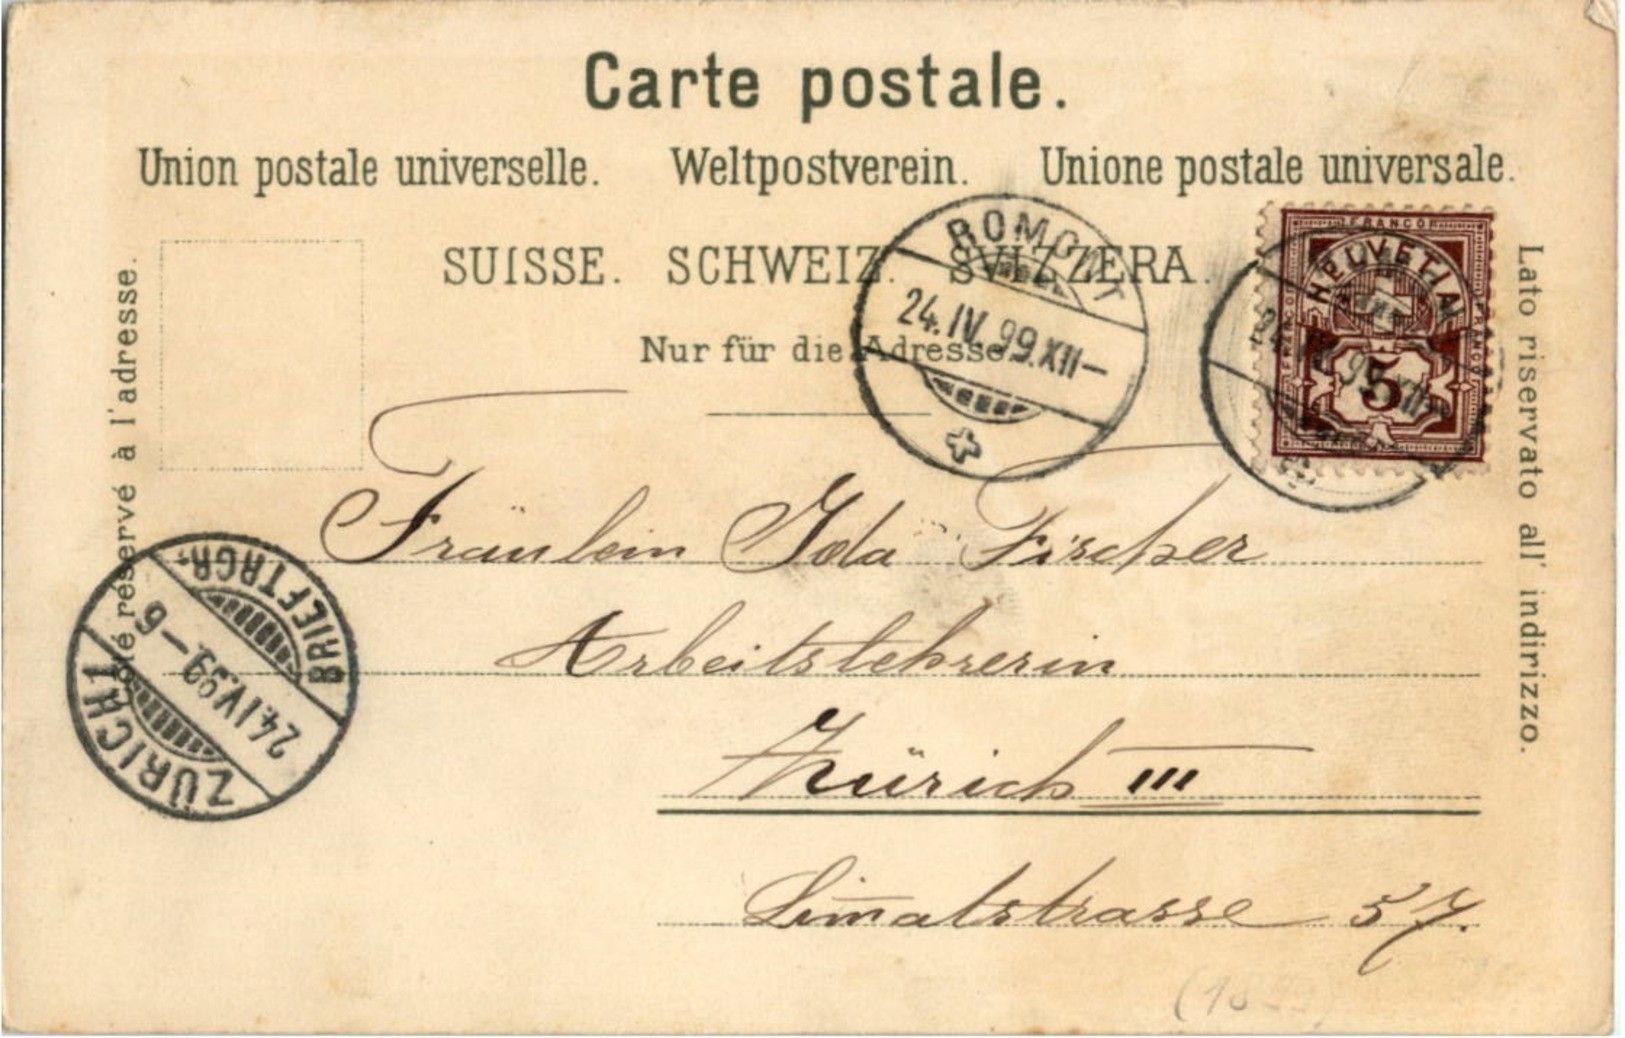 Carte postale.
Union postale universelle. Weltpostverein. Unione postale universale.
SUISSE. SCHWEIZ. SVIZZERA.
Nur für die Adresse.
Côté réservé à l'adresse.
Lato riservato all' indirizzo.
ROMONT
24.IV.99.XII–
FRANCO
HELVETIA
FRANCO
FRANCO
5
24.IV.99.XII–
Fräulein Ida Fischer
Arbeitslehrerin
Zürich III
Lim̄atstrasse 57.
ZÜRICH 1
24.IV.99.–6
BRIEFTRGR.